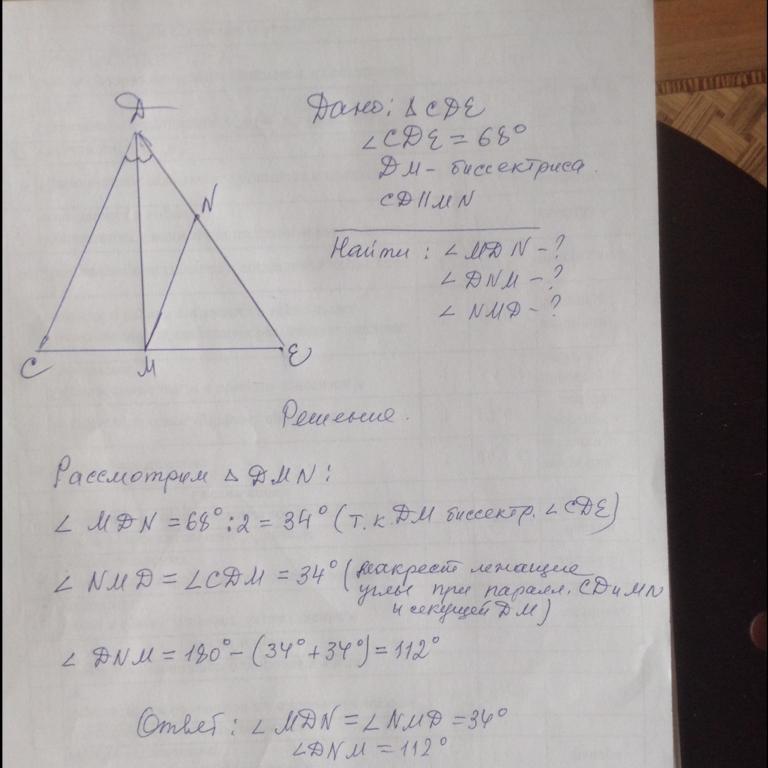 D
N
C
M
E
Дано: △CDE
∠CDE = 68°
DM - биссектриса.
CD || MN
Найти: ∠MDN - ?
∠DNM - ?
∠NMD - ?
Решение.
Рассмотрим △DMN:
∠MDN = 68° : 2 = 34° (т.к. DM биссектр. ∠CDE)
∠NMD = ∠CDM = 34° (накрест лежащие
углы при паралл. CD и MN
и секущей DM)
∠DNM = 180° - (34° + 34°) = 112°
Ответ: ∠MDN = ∠NMD = 34°
∠DNM = 112°